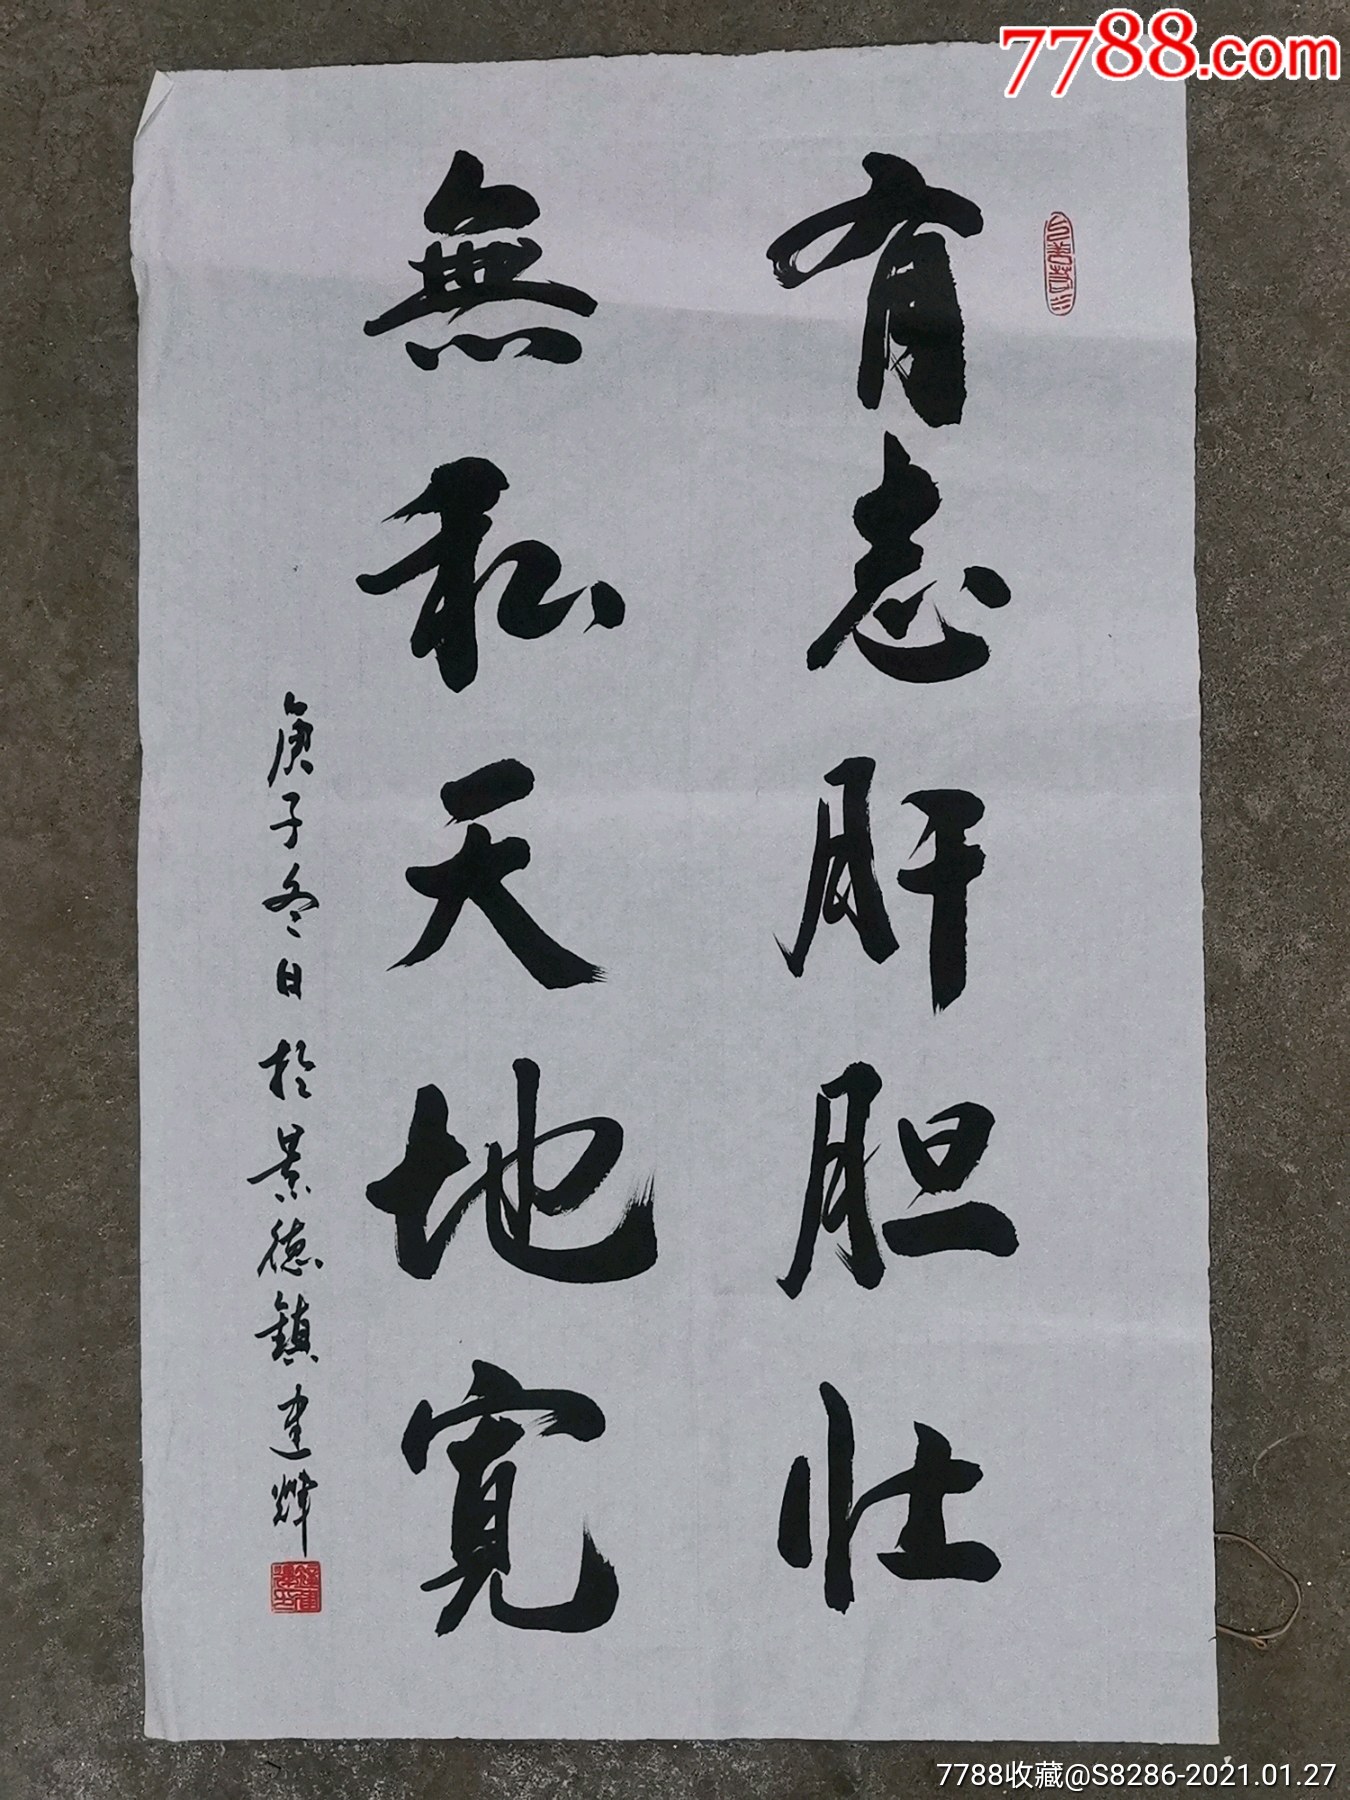 7788.com
有志肝胆壮
無私天地寬
庚子冬日於景德鎮建輝
7788收藏@S8286-2021.01.27